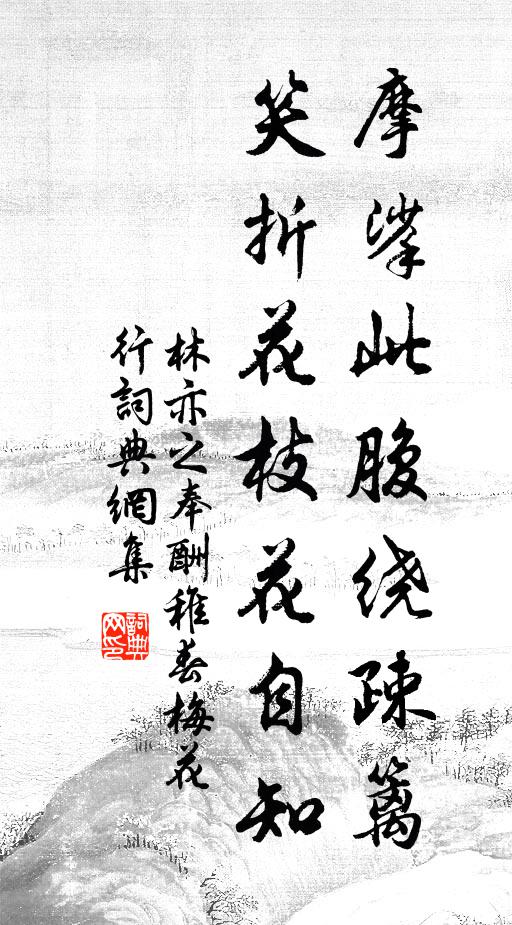 摩挲此腹绕疎篱
笑折花枝花自知
林亦之奉酬稚春梅花
行詞典網集
詞典网印